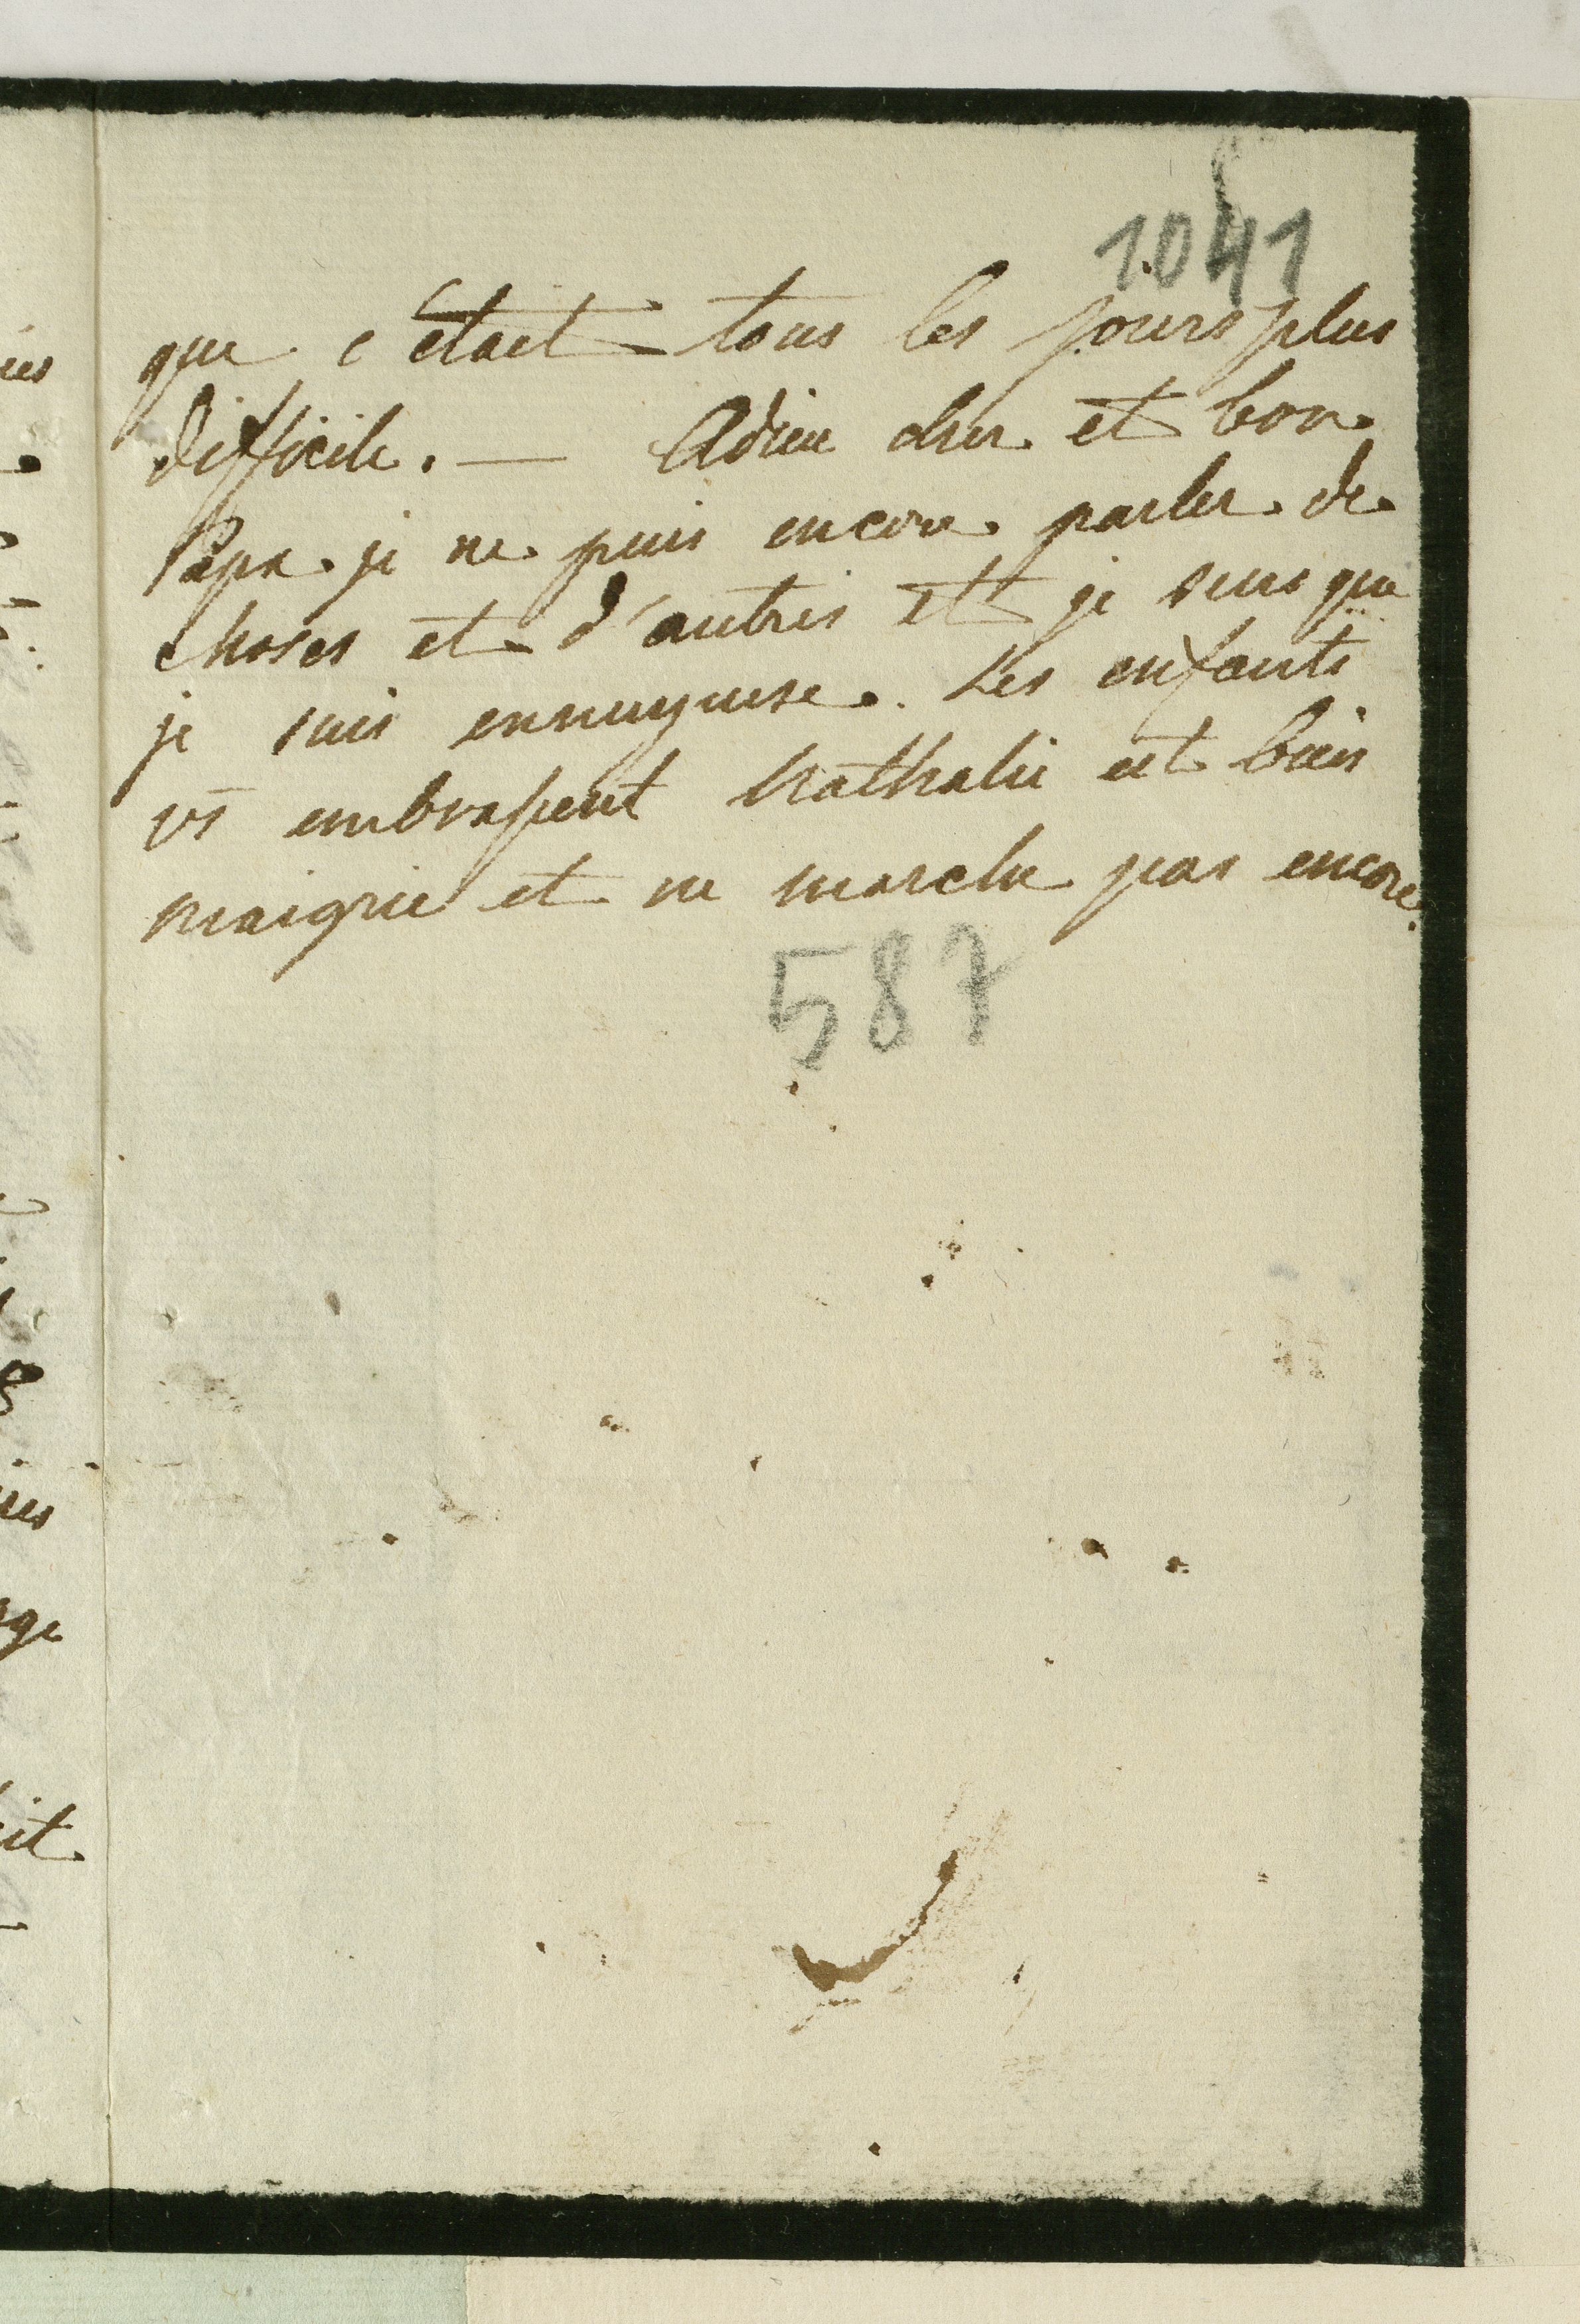 1041
que c'était tous les jours plus
difficile. — Adieu cher et bon
Papa je ne puis encore parler de
choses et d'autres et je sens que
je suis ennuyeuse. Les enfants
vs embrassent Nathalie est bien
maigrie et ne marche pas encore.
587